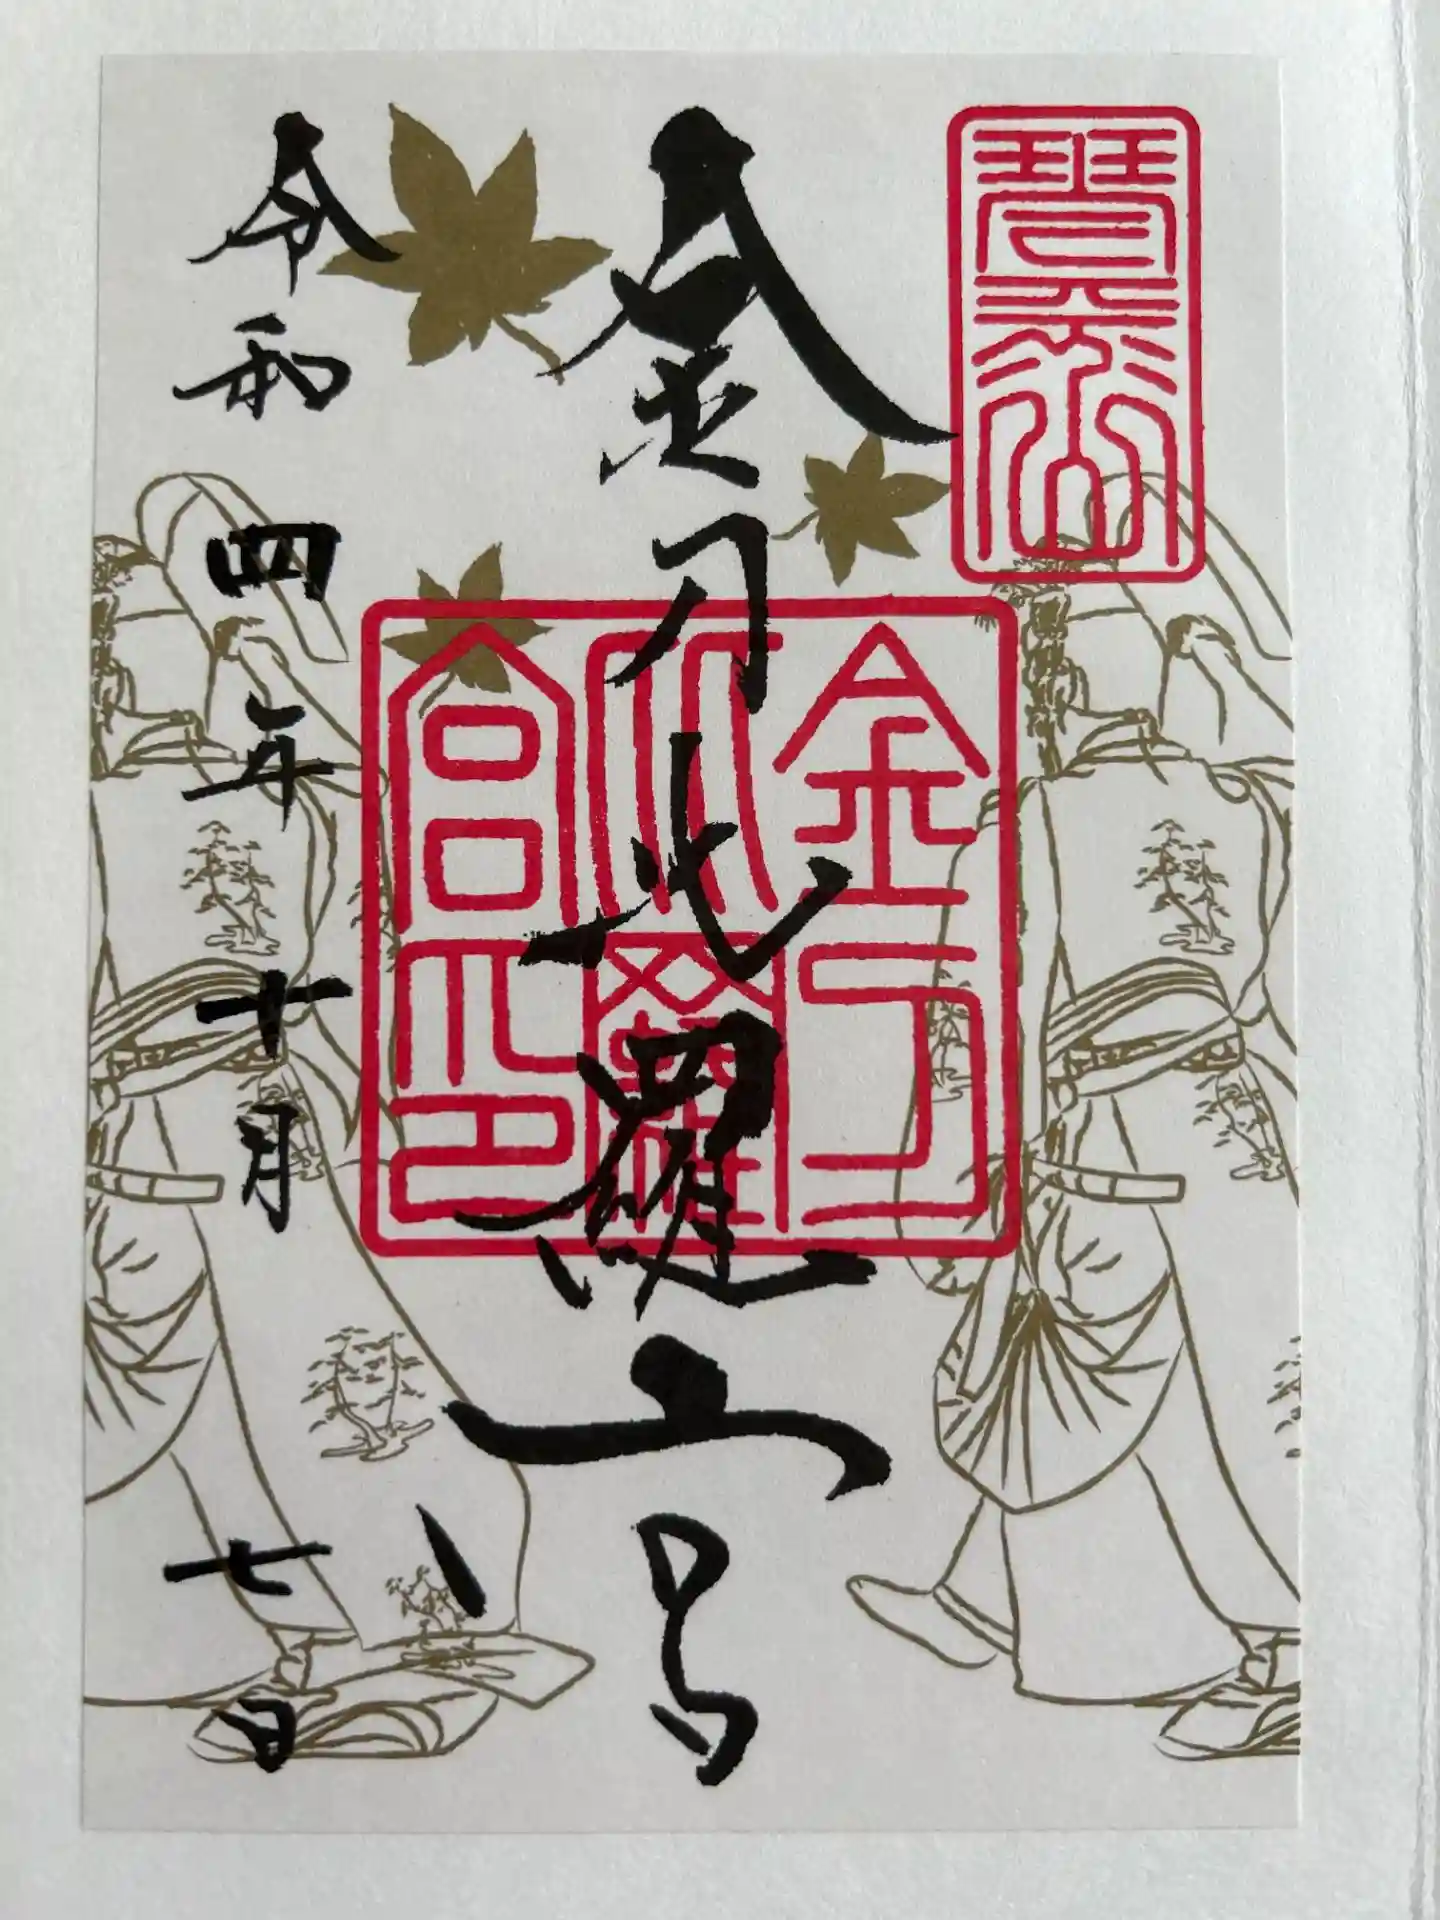 琴平山
金刀比羅宮
金刀比羅宮印
令和四年十月七日